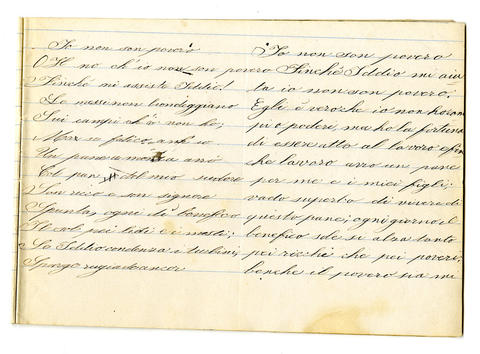 Io non son povero
Oh no ch'io non son povero
Finchè mi assiste Iddio!
Le messi non biondeggiano
Sui campi ch'io non ho;
Ma se fatico, anch'io
Un pane a mensa avrò
Col pan del mio sudore
Son ricco e son signore
Spunta, ogni dì benefico
Il sol pei lidi e i mesti;
Se Iddio condensa i turbini,
Sparge rugiade ancor
Io non son povero
Finchè Iddio mi aiu
ta io non son povero;
Egli è vero che io non ho cam
pi o podere, ma ho la fortuna
di essere atto al lavoro e fin
che lavoro avrò un pane
per me e i miei figli;
vado superbo di vivere di
questo pane; ogni giorno il
benefico sole si alza tanto
pei ricchi che pei poveri;
benchè il povero sia mi